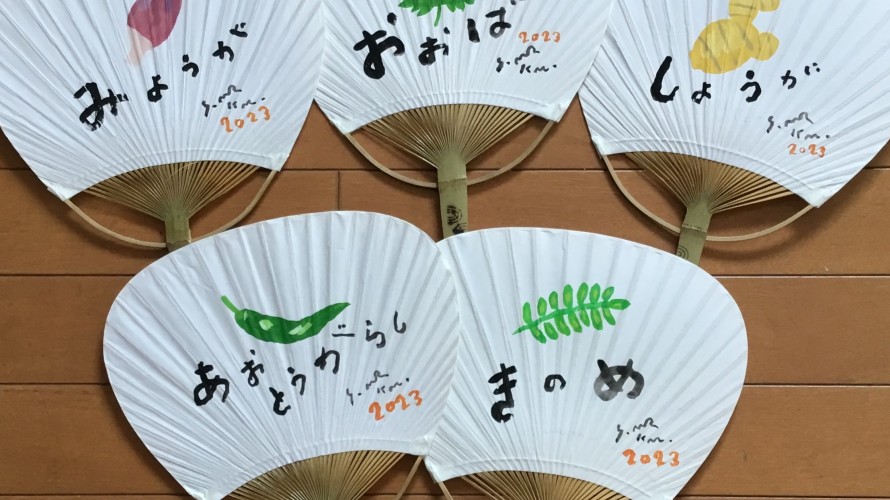 みょうが
2023
おおば
2023
しょうが
2023
あおとうがらし
2023
きのめ
2023